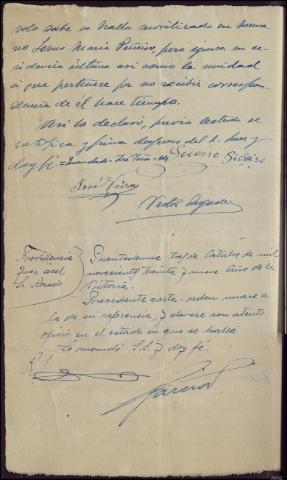 solo sabe se halla movilizado su herma
no Jesus Maria Piñeiro pero ignora su re
sidencia última asi como la unidad
a que pertenece por no recibir correspon
dencia de él hace tiempo.
Asi lo declaró, previa lectura se
ratifica y firma despues del Sr. Juez y
doy fé =
Socorro Piñeiro
José Neira
Victor
Providencia
Juez acctal
Sr. Rosado
Puentedeume tres de Octubre de mil
novecientos treinta y nueve Año de la
Victoria.
Precedente carta-orden unase a
la de su referencia, y elevese con atento
oficio en el estado en que se halla
Lo mandó S.S. y doy fé.
R/
García